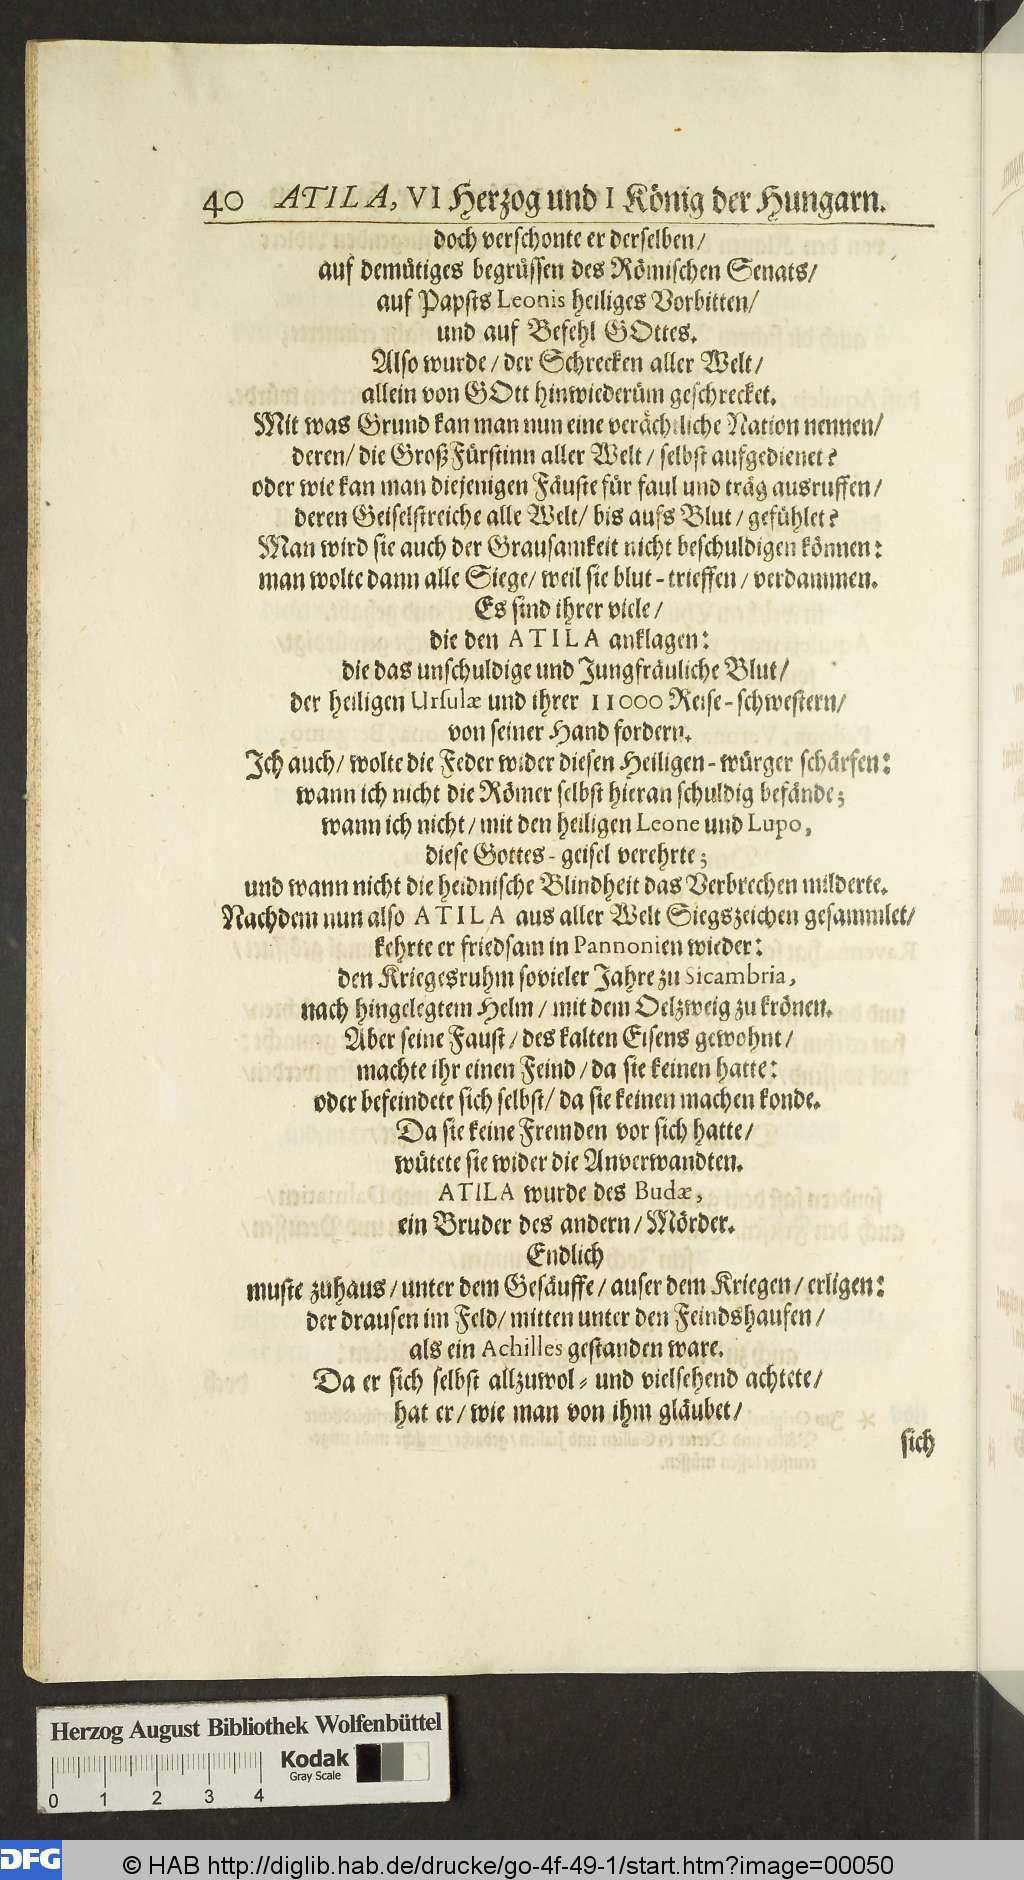 40 ATILA, VI Herzog und I König der Hungarn.
doch verschonte er derselben/
auf demütiges begrüssen des Römischen Senats/
auf Papsts Leonis heiliges Vorbitten/
und auf Befehl GOttes.
Also wurde/ der Schrecken aller Welt/
allein von GOtt hinwiederüm geschrecket.
Mit was Grund kan man nun eine verächtliche Nation nennen/
deren/ die GroßFürstinn aller Welt/ selbst aufgedienet?
oder wie kan man diejenigen Fäuste für faul und träg ausruffen/
deren Geiselstreiche alle Welt/ bis aufs Blut/ gefühlet?
Man wird sie auch der Grausamkeit nicht beschuldigen können:
man wolte dann alle Siege/ weil sie blut-trieffen/ verdammen.
Es sind ihrer viele/
die den ATILA anklagen:
die das unschuldige und Jungfräuliche Blut/
der heiligen Ursulæ und ihrer 11000 Reise-schwestern/
von seiner Hand fordern.
Ich auch/ wolte die Feder wider diesen Heiligen-würger schärfen:
wann ich nicht die Römer selbst hieran schuldig befände;
wann ich nicht/ mit den heiligen Leone und Lupo,
diese Gottes-geisel verehrte;
und wann nicht die heidnische Blindheit das Verbrechen milderte.
Nachdem nun also ATILA aus aller Welt Siegszeichen gesammlet/
kehrte er friedsam in Pannonien wieder:
den Kriegesruhm sovieler Jahre zu Sicambria,
nach hingelegtem Helm/ mit dem Oelzweig zu krönen.
Aber seine Faust/ des kalten Eisens gewohnt/
machte ihr einen Feind/ da sie keinen hatte:
oder befeindete sich selbst/ da sie keinen machen konde.
Da sie keine Fremden vor sich hatte/
wütete sie wider die Anverwandten.
ATILA wurde des Budæ,
ein Bruder des andern/ Mörder.
Endlich
muste zuhaus/ unter dem Gesäuffe/ auser dem Kriegen/ erligen:
der drausen im Feld/ mitten unter den Feindshaufen/
als ein Achilles gestanden ware.
Da er sich selbst allzuwol- und vielsehend achtete/
hat er/ wie man von ihm gläubet/
sich
Herzog August Bibliothek Wolfenbüttel
Kodak
Gray Scale
0 1 2 3 4
DFG
© HAB http://diglib.hab.de/drucke/go-4f-49-1/start.htm?image=00050